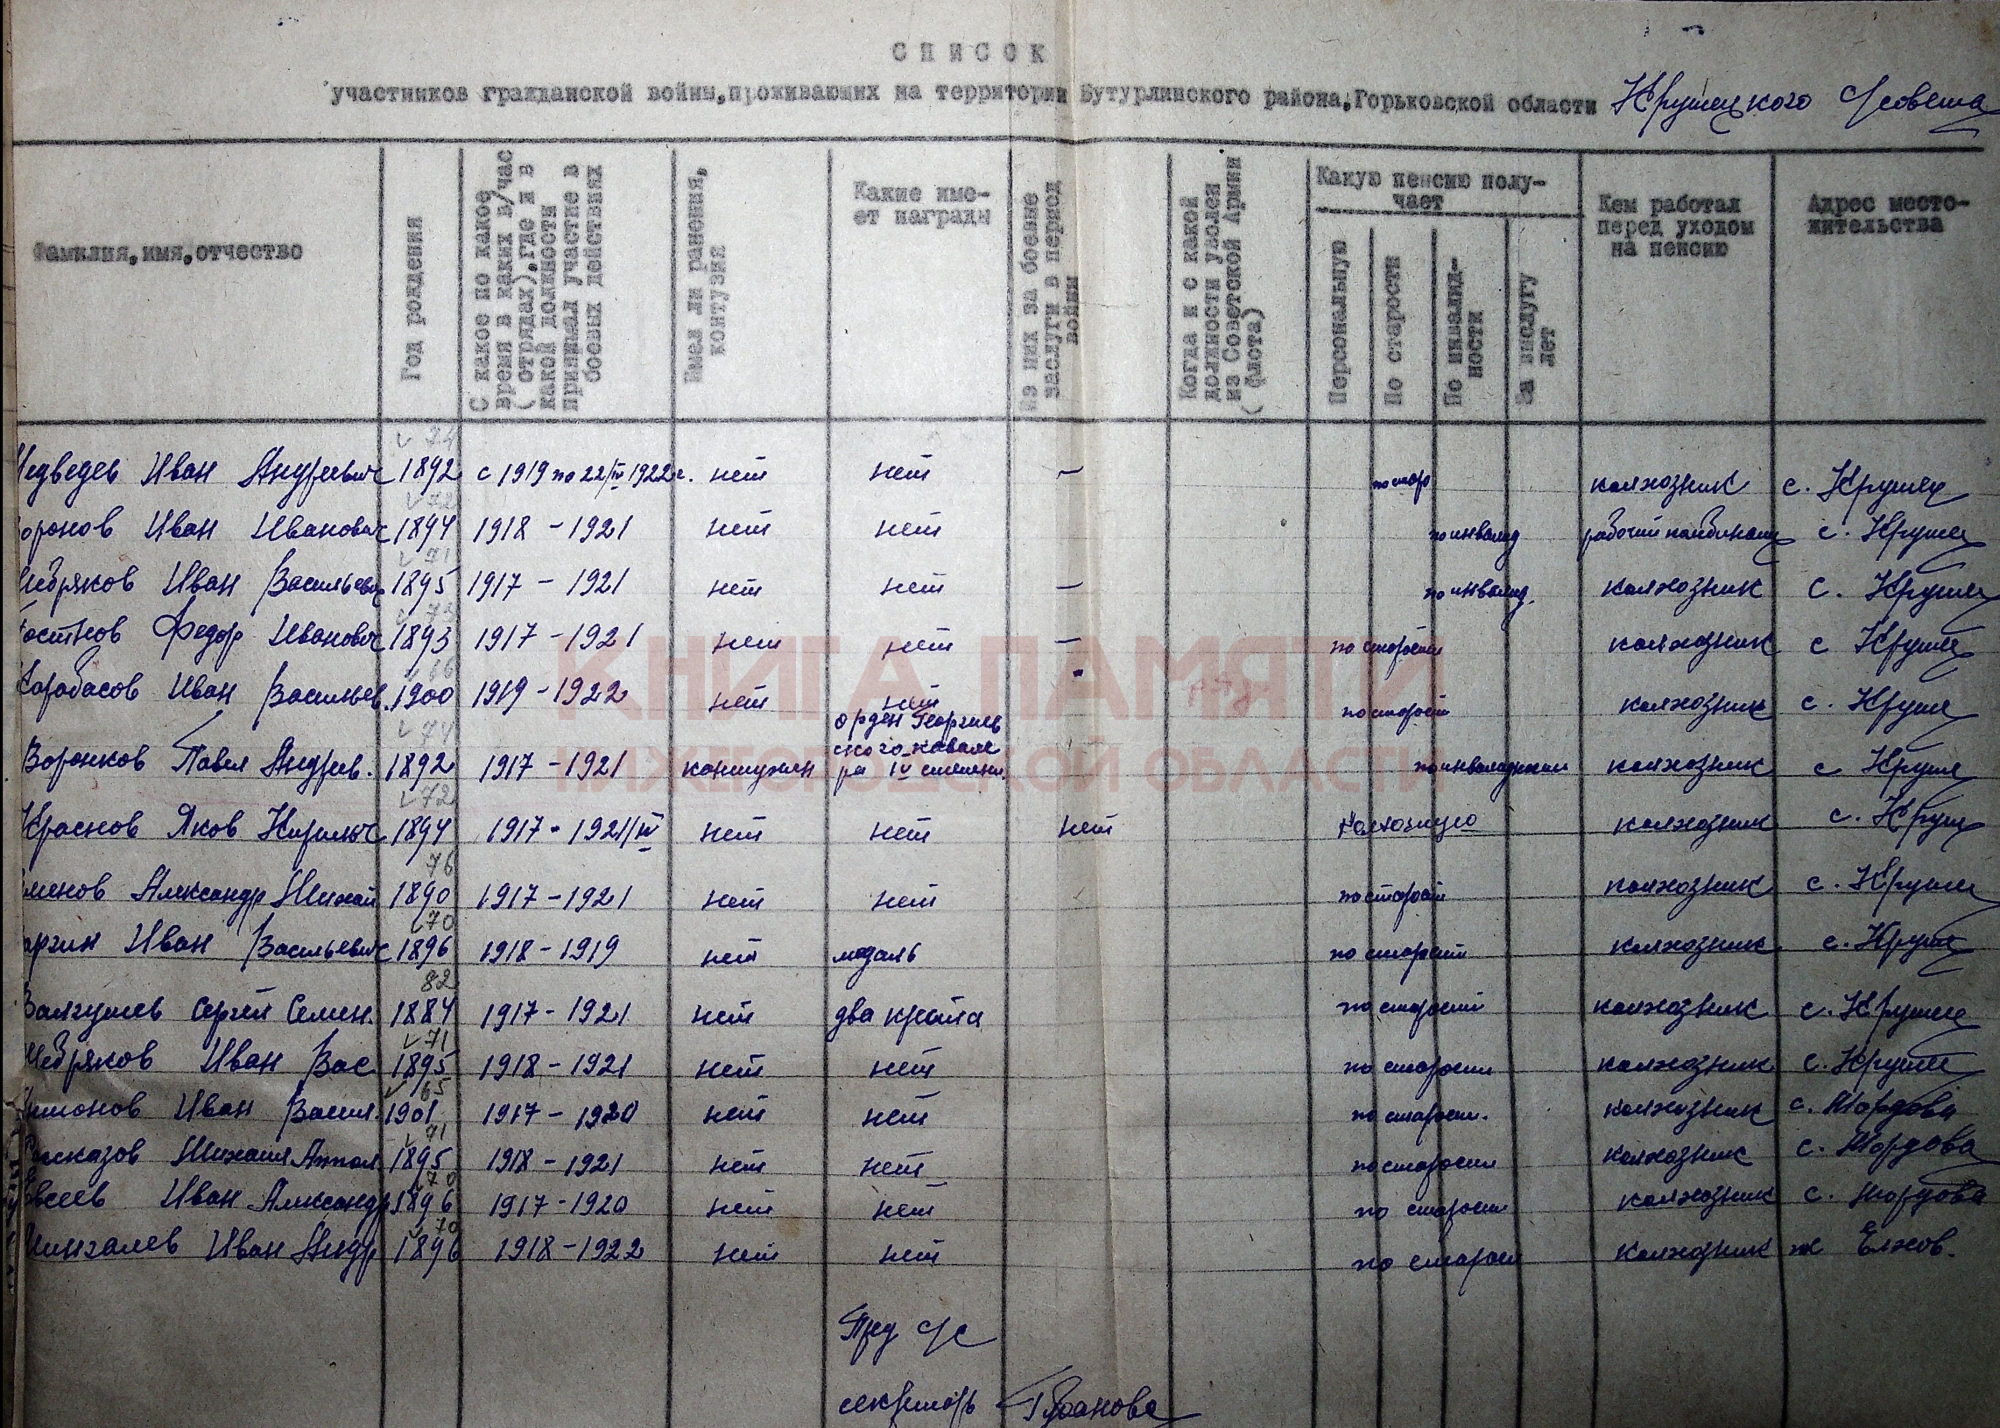 СПИСОК
участников гражданской войны, проживающих на территории Бутурлинского района, Горьковской области Крутецкого с/совета
Фамилия, имя, отчество
Год рождения
С какое по какое время в каких в/час (отрядах), где и в какой должности принимал участие в боевых действиях
Имел ли ранения, контузия
Какие имеет награды
Из них за боевые заслуги в период войны
Когда и с какой должности уволен из Советской Армии (флота)
Какую пенсию получает
Персональную
По старости
По инвалидности
За выслугу лет
Кем работал перед уходом на пенсию
Адрес местожительства
Медведев Иван Андреевич 1892 74 с 1919 по 22/IV 1922 г. нет нет – по стар колхозник с. Крутец
Воронов Иван Иванович 1894 72 1918 - 1921 нет нет по инвалид рабочий с. Крутец
Шебряков Иван Васильевич 1895 71 1917 - 1921 нет нет – по инвалид. колхозник с. Крутец
Федор Иванович 1893 1917 - 1921 нет нет – по старости колхозник с Крутец
Карабасов Иван Васильев. 1900 66 1919 - 1922 нет нет по старости колхозник с. Крутец
Воронков Павел Андреев. 1892 74 1917 - 1921 контужен орден Георгиевского кавалера IV степени по инвалидности колхозник с Крутец
Краснов Яков Кирилыч 1894 72 1917 - 1921/IV нет нет нет колхозную колхозник с. Крутец
Александр Михай 1890 76 1917 - 1921 нет нет по старости колхозник с. Крутец
Иван Васильевич 1896 70 1918 - 1919 нет медаль по старости колхозник с. Крутец
Валгушев Сергей Семен. 1884 82 1917 - 1921 нет два креста по старости колхозник с. Крутец
Шебряков Иван Вас 1895 71 1918 - 1921 нет нет по старости колхозник с. Крутец
Иван Васил. 1901 65 1917 - 1920 нет нет по старости. колхозник с. Мордова
Рассказов Михаил 1895 71 1918 - 1921 нет нет по старости колхозник с. Мордова
Евсеев Иван Александр 1896 70 1917 - 1920 нет нет по старости колхозник с. Мордова
Иван Андр 1896 70 1918 - 1922 нет нет по старости колхозник Елхов.
Пред с/с
секретарь
КНИГА ПАМЯТИ
НИЖЕГОРОДСКОЙ ОБЛАСТИ